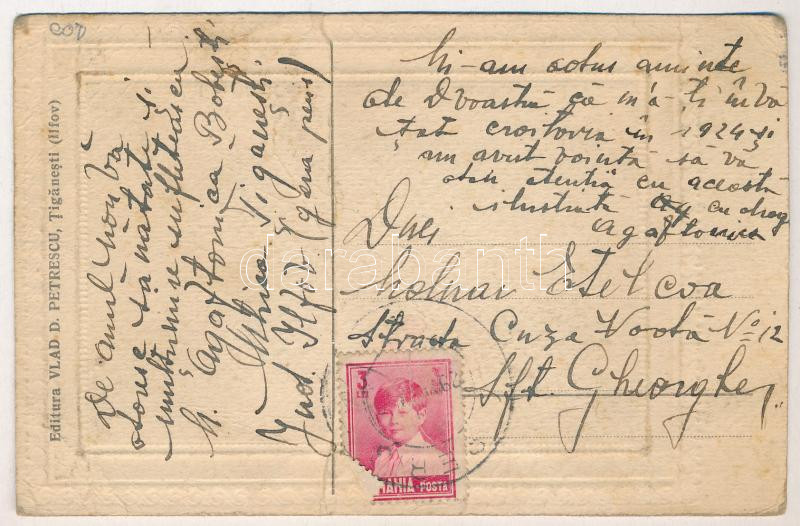 Editura VLAD D. PETRESCU, Țigănești (Ilfov)
De anul nou vă
doresc sănătate și
mulțumire sufletească
M. Agaftonica Bobești
Țigănești
Jud. Ilfov (gara peris)
Mi-am adus aminte
de Dvoastră că m'ați învă
țat croitoria în 1924 și
am avut voință să vă
atenție cu această
ilustrată cu drag
Agaftonica
Dnei
Molnar Etelcoa
Strada Cuza Vodă No 12
Sft. Gheorghe
3
MANIA-POSTA
darabanth